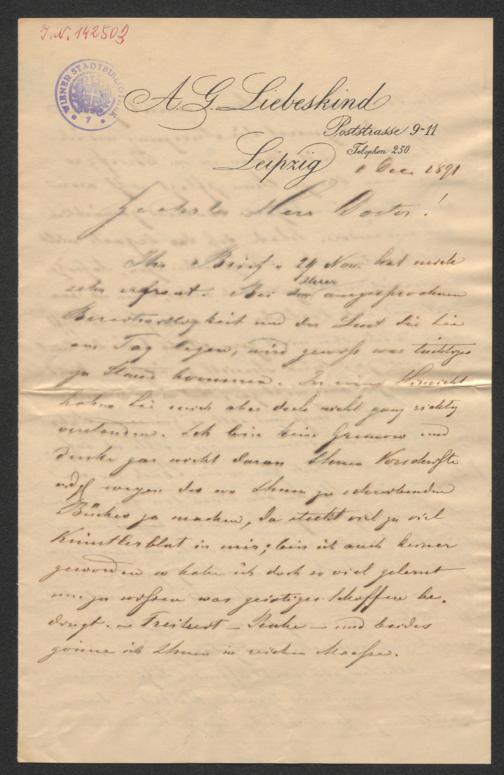 J.N. 142503
WIENER STADTBIBLIOTHEK
A. G. Liebeskind
Poststrasse 9-11
Telephon 250
Leipzig
1 Dec. 1891
Geehrter Herr Doctor!
Ihr Brief v 24 Nov. hat mich
sehr erfreut. Bei Ihrer ausgesprochenen
Bereitwilligkeit und der Lust die Sie
an Tag legen, wird gewiss was tüchtiges
zu Stand kommen. In einer Hinsicht
haben Sie mich aber doch nicht ganz richtig
verstanden. Ich bin kein und
denke gar nicht daran Ihnen Vorschrifte
wegen des von Ihnen zu schreibenden
Buches zu machen, da steckt viel zu viel
Künstlerblut in mir; bin ich auch keiner
geworden so habe ich doch so viel gelernt
um zu wissen was geistiges Schaffen be-
dingt. – Freiheit – Ruhe – und beides
gönne ich Ihnen in reichem Maasse.